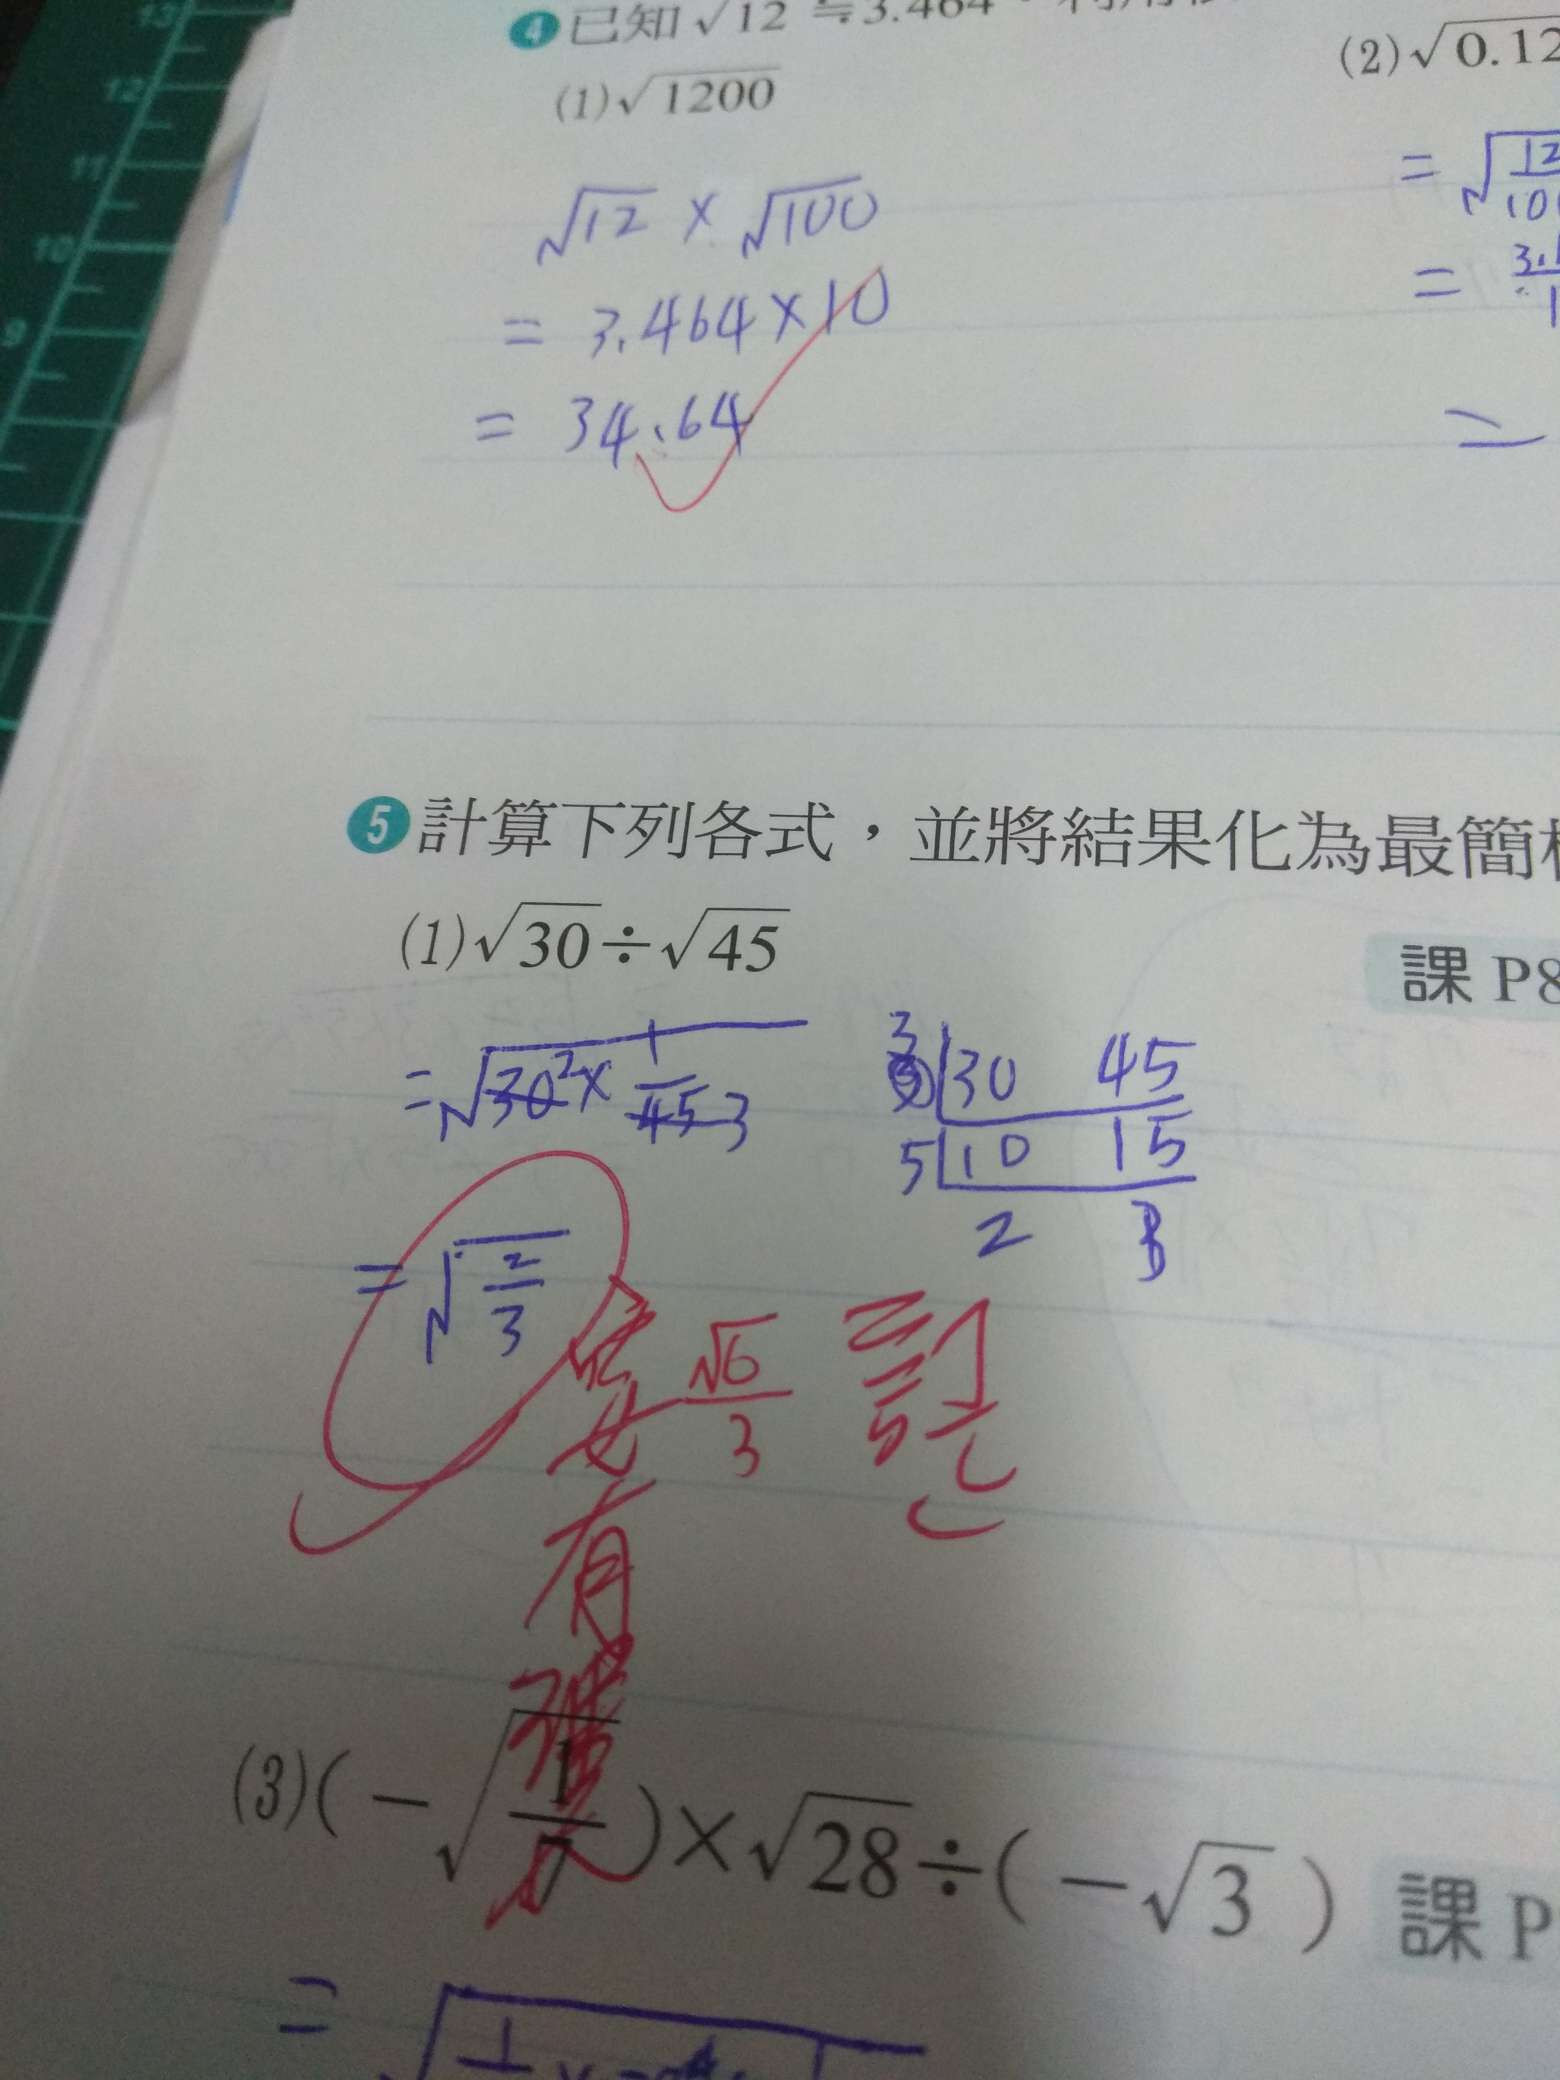 13
12
11
10
9
4 已知√12≒3.464,
(1)√1200
(2)√0.12
√12 × √100
= 3.464×10
= 34.64
= √12
= 3.
=
5 計算下列各式,並將結果化為最簡
(1)√30÷√45
課 P8
=√30² × 1/45 3
3 30 45
5 10 15
2 3
=√2/3
√6/3
有
(3)(-√1/7)×√28÷(-√3)
課 P
=